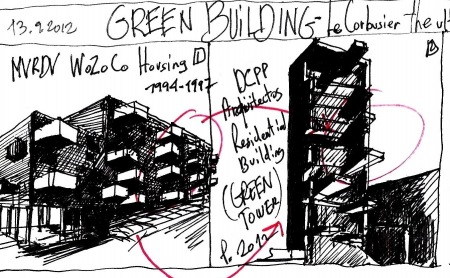 13.9.2012 GREEN BUILDING - Le Corbusier the ult
MVRDV WoZoCo Housing
1994-1997
DCPP
Architectos
Residential
Building
(GREEN)
TOWER
P. 2012